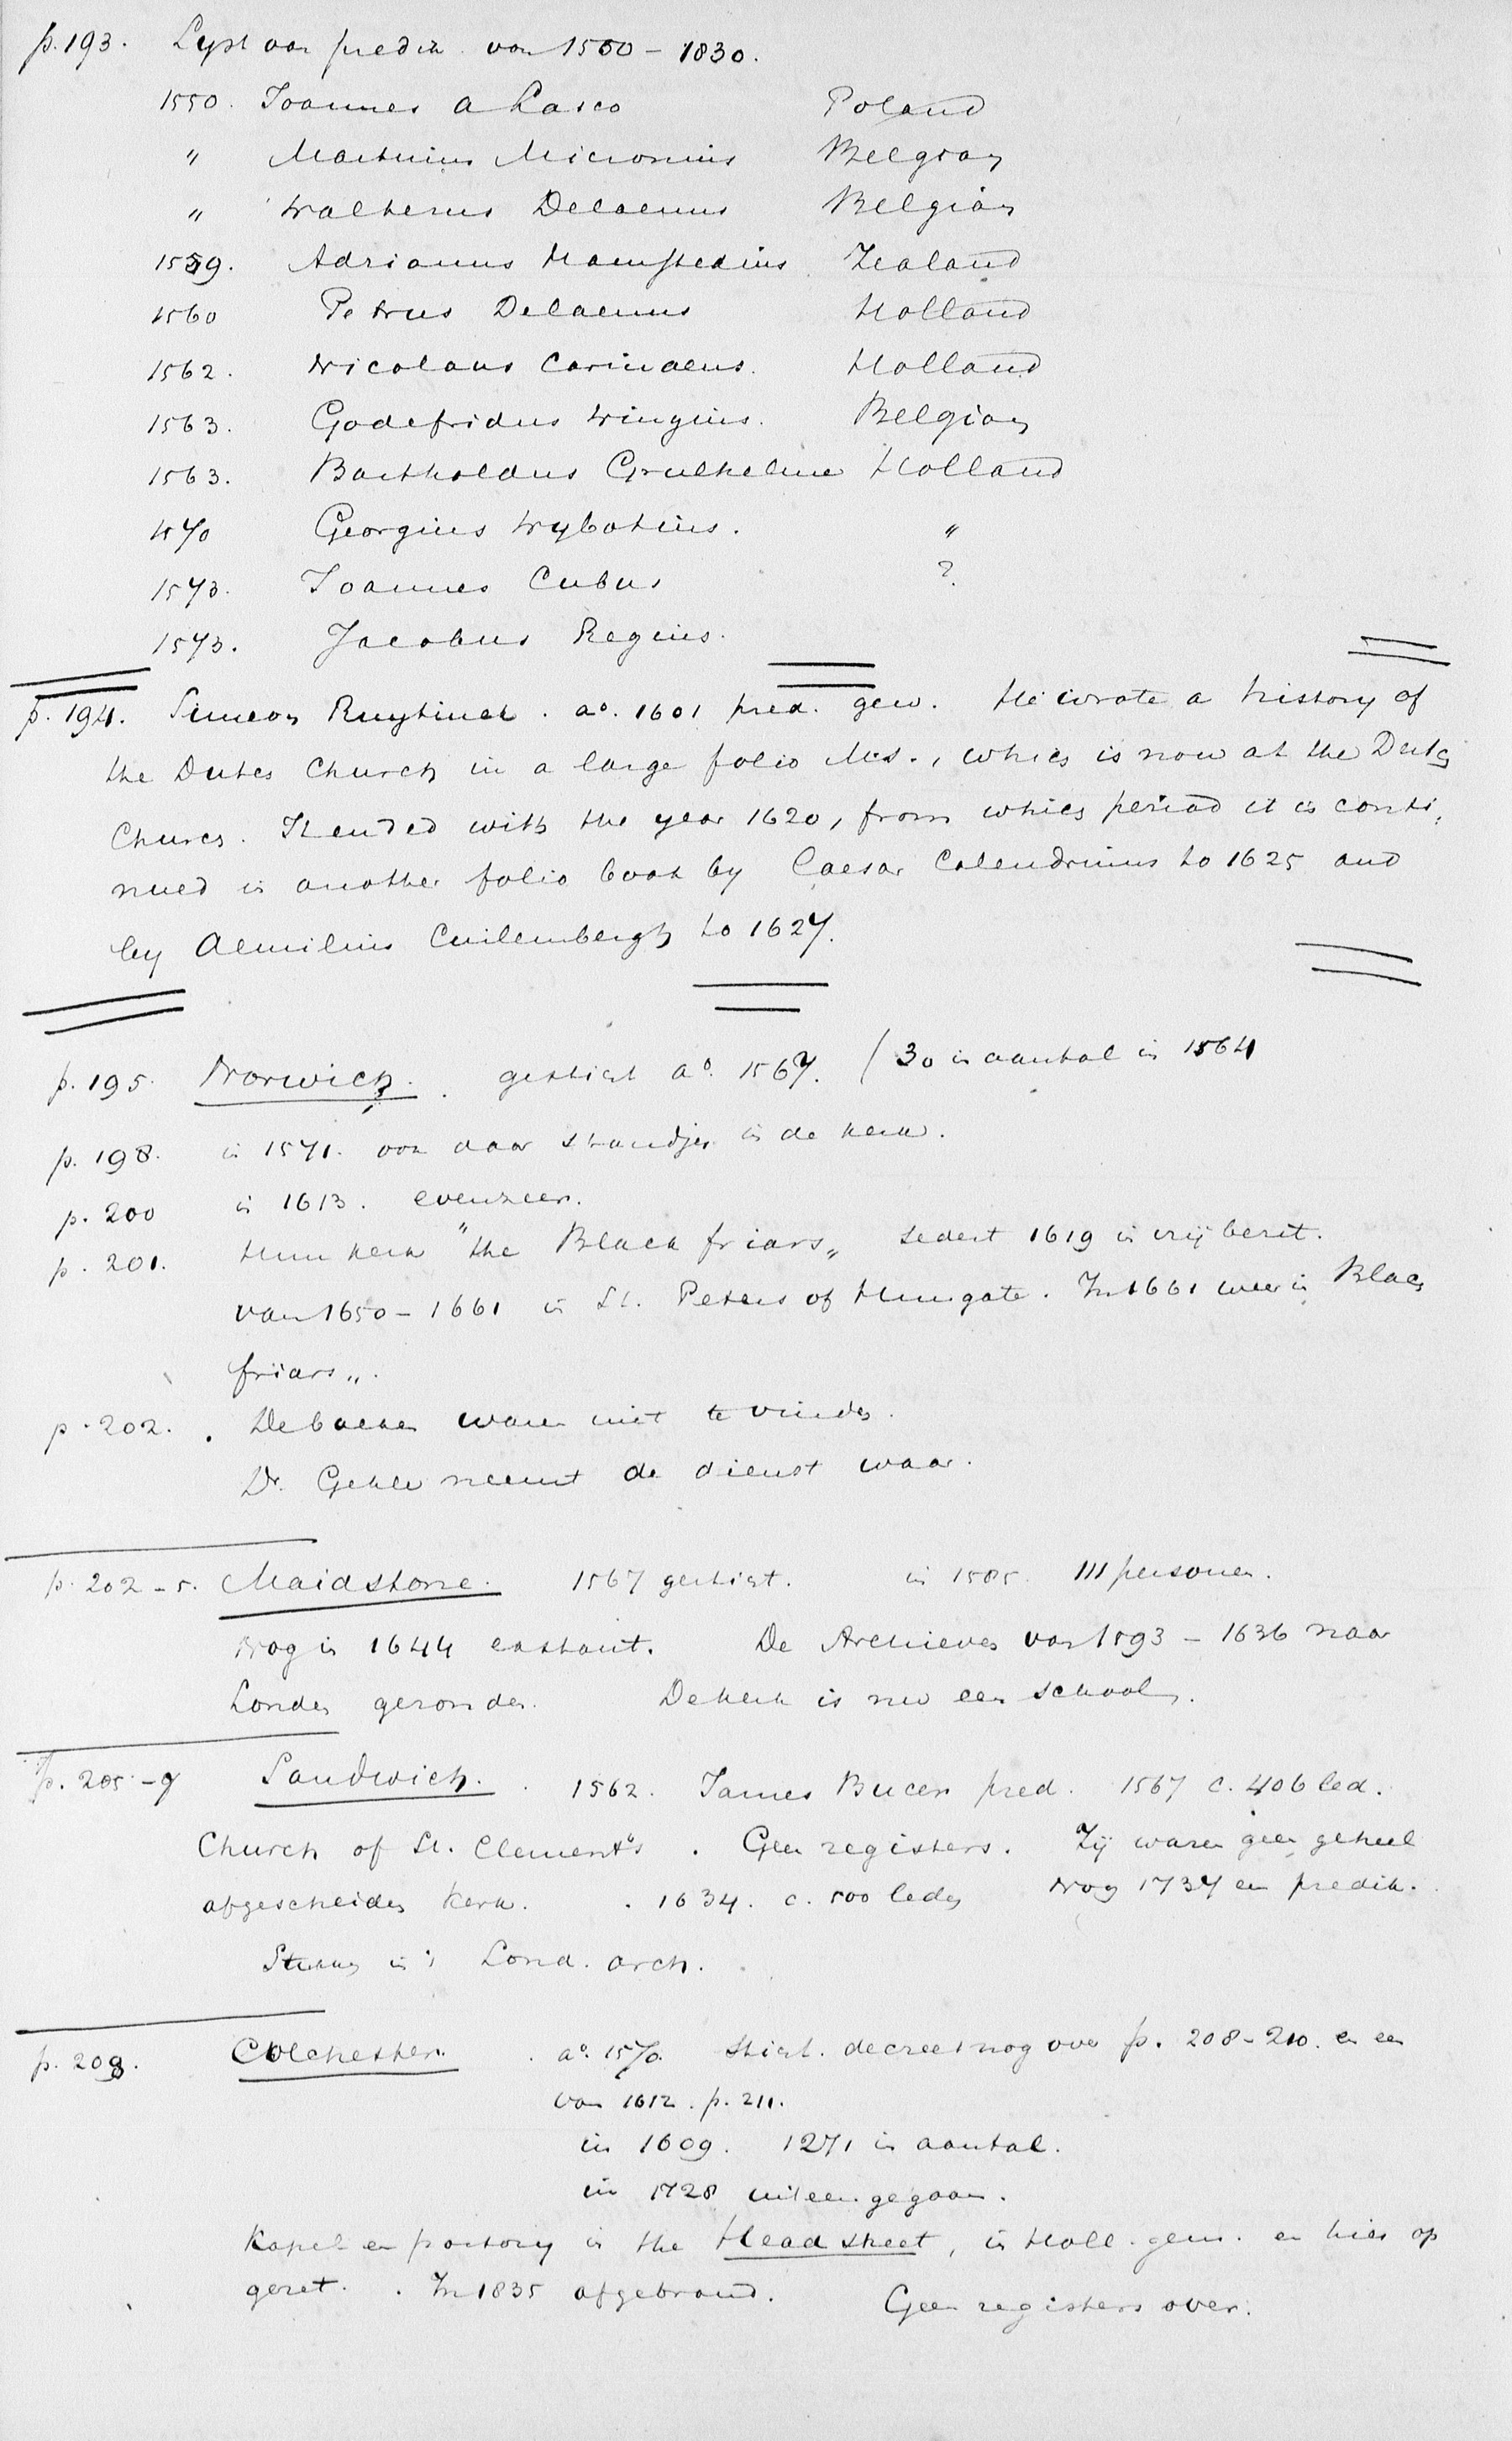 p. 193. Lyst van predik. van 1550 - 1830.
1550. Joannes a Lasco Poland
" Martinus Micronius Belgian
" Walterus Delaenus Belgian
1559. Adrianus Hamstedius Zealand
1560 Petrus Delaenus Holland
1562. Nicolaus Carinaeus. Holland
1563. Godefridus Wingius. Belgian
1563. Bartholdus Holland
1570 Georgius Wybotius. "
1573. Joannes Cubus ?
1573. Jacobus Regius.
p. 194. Simeon Ruytinck. ao. 1601 pred. gew. He wrote a history of
the Dutch Church in a large folio Ms., which is now at the Dutch
Church. It ended with the year 1620, from which period it is conti,
nued in another folio book by Caesar Calendrinus to 1625 and
by Aemilius Cuilembergh to 1627.
p. 195. Norwich. gesticht ao. 1567. (30 in aantal in 1564
p. 198. in 1571. ook daar standjes in de kerk.
p. 200 in 1613. evenzeer.
p. 201. Hun kerk "the Black friars" sedert 1619 in vrij bezit.
van 1650 - 1661 in St. Peters of Hungate. In 1661 weer in Black
friars".
p. 202. De boeken waren niet te vinden.
Dr. Gehle neemt de dienst waar.
p. 202 - 5. Maidstone. 1567 gesticht. in 1585. 111 personen.
Nog in 1644 extant. De Archieven van 1593 - 1636 naar
Londen gezonden. De kerk is nu een school.
p. 205 - 7 Sandwich. 1562. James Bucer pred. 1567 c. 406 led.
Church of St. Clement's. Geen registers. Zij waren geen geheel
afgescheiden kerk. 1634. c. 500 leden Nog 1737 een predik.
Stukken in 't Lond. arch.
p. 208. Colchester. ao. 1570. Sticht. decreet nog over p. 208 - 210. en een
van 1612. p. 211.
in 1609. 1271 in aantal.
in 1728 uiteengegaan.
Kapel en pastory in the Head street, in Holl. gem. en hier op
gezet. In 1835 afgebrand. Geen registers over.